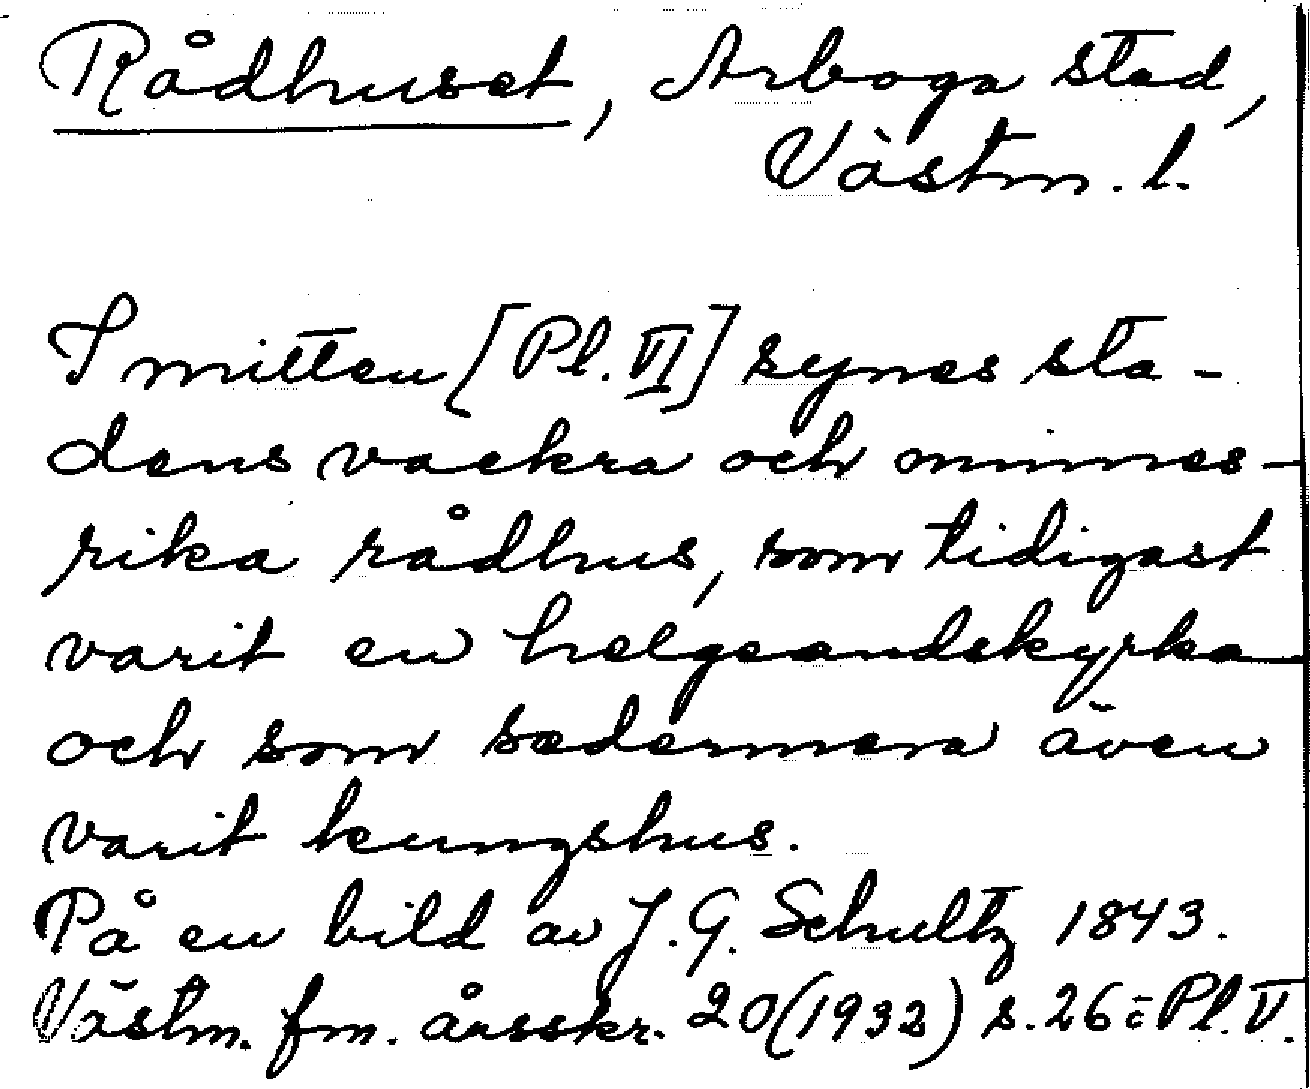 Rådhuset, Arboga stad,
Västm. l.
I mitten [Pl. VI] synes sta-
dens vackra och minnes-
rika rådhus, som tidigast
varit en helgeandskyrka
och som sedermera även
varit kungshus.
På en bild av J. G. Schultz 1843.
Västm. fm. årsskr. 20 (1932) s. 26 o Pl. V.